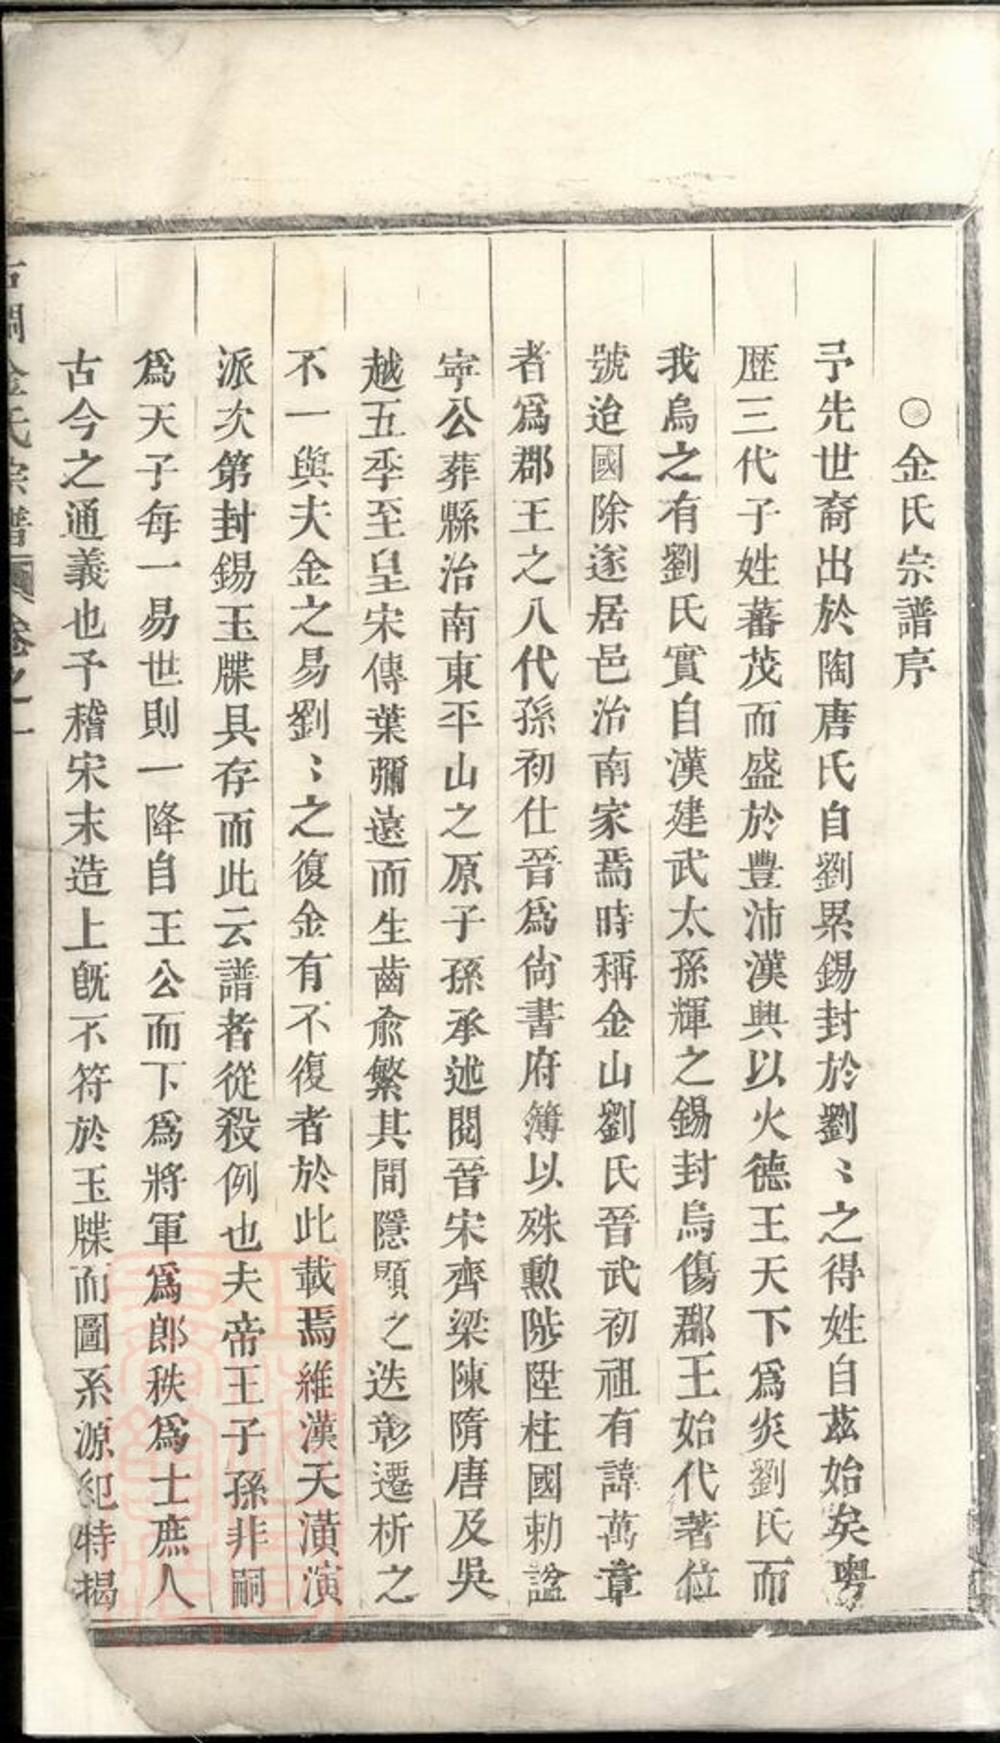 ○金氏宗譜序
予先世裔出於陶唐氏自劉累錫封於劉〻之得姓自茲始矣粵
歷三代子姓蕃茂而盛於豐沛漢興以火德王天下爲炎劉氏而
我烏之有劉氏實自漢建武太孫輝之錫封烏傷郡王始代著位
號迨國除遂居邑治南家焉時稱金山劉氏晉武初祖有諱萬章
者爲郡王之八代孫初仕晉爲尙書府簿以殊勲陟陞柱國勅諡
寧公葬縣治南東平山之原子孫承述閱晉宋齊梁陳隋唐及吳
越五季至皇宋傳葉彌遠而生齒兪繁其間隱顯之迭彰遷析之
不一與夫金之易劉〻之復金有不復者於此載焉維漢天潢演
派次第封錫玉牒具存而此云譜者從殺例也夫帝王子孫非嗣
爲天子每一易世則一降自王公而下爲將軍爲郎秩爲士庶人
古今之通義也予稽宋末造上旣不符於玉牒而圖系源紀特揭
金氏宗譜卷之一